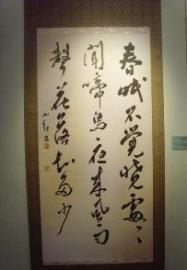 春眠不覺曉處〻
聞啼鳥夜來風雨
聲花落知多少